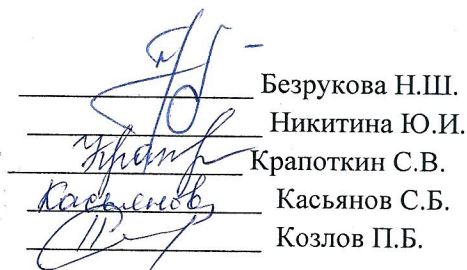 Безрукова Н.Ш.
Никитина Ю.И.
Крапоткин С.В.
Касьянов Касьянов С.Б.
Козлов П.Б.